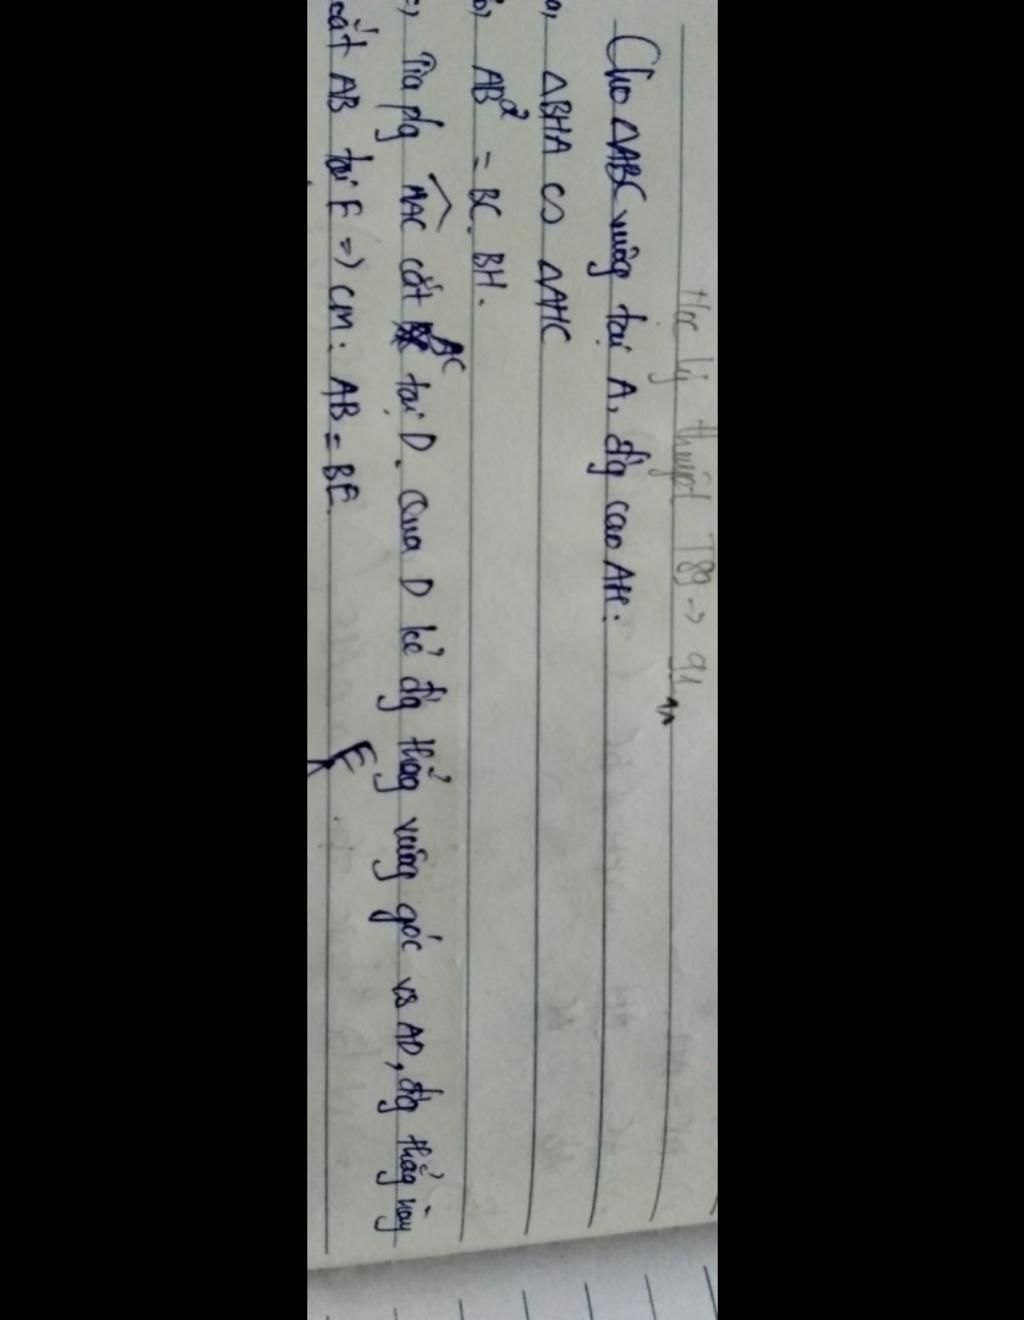 Học lý thuyết T89 -> 91
Cho ΔABC vuông tại A, đg cao AH.
a, ΔBHA ∽ ΔAHC
b, AB² = BC. BH.
c, Tia pg HAC cắt BC tại D. Qua D kẻ đg thẳg vuông góc vs AD, đg thẳg này
cắt AB tại F => CM: AB = BE.
E